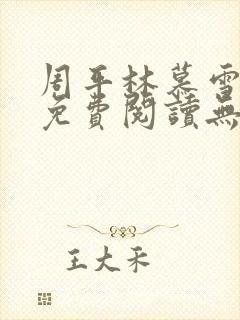 周平林慕雪
免費閱讀無
王大禾